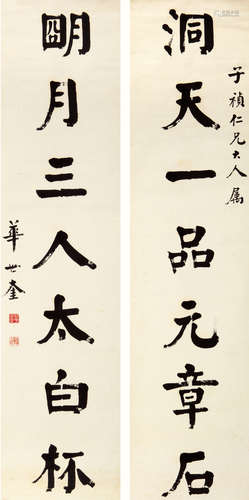 子禎仁兄大人属
洞天一品元章石
朙月三人太白杯
華世奎